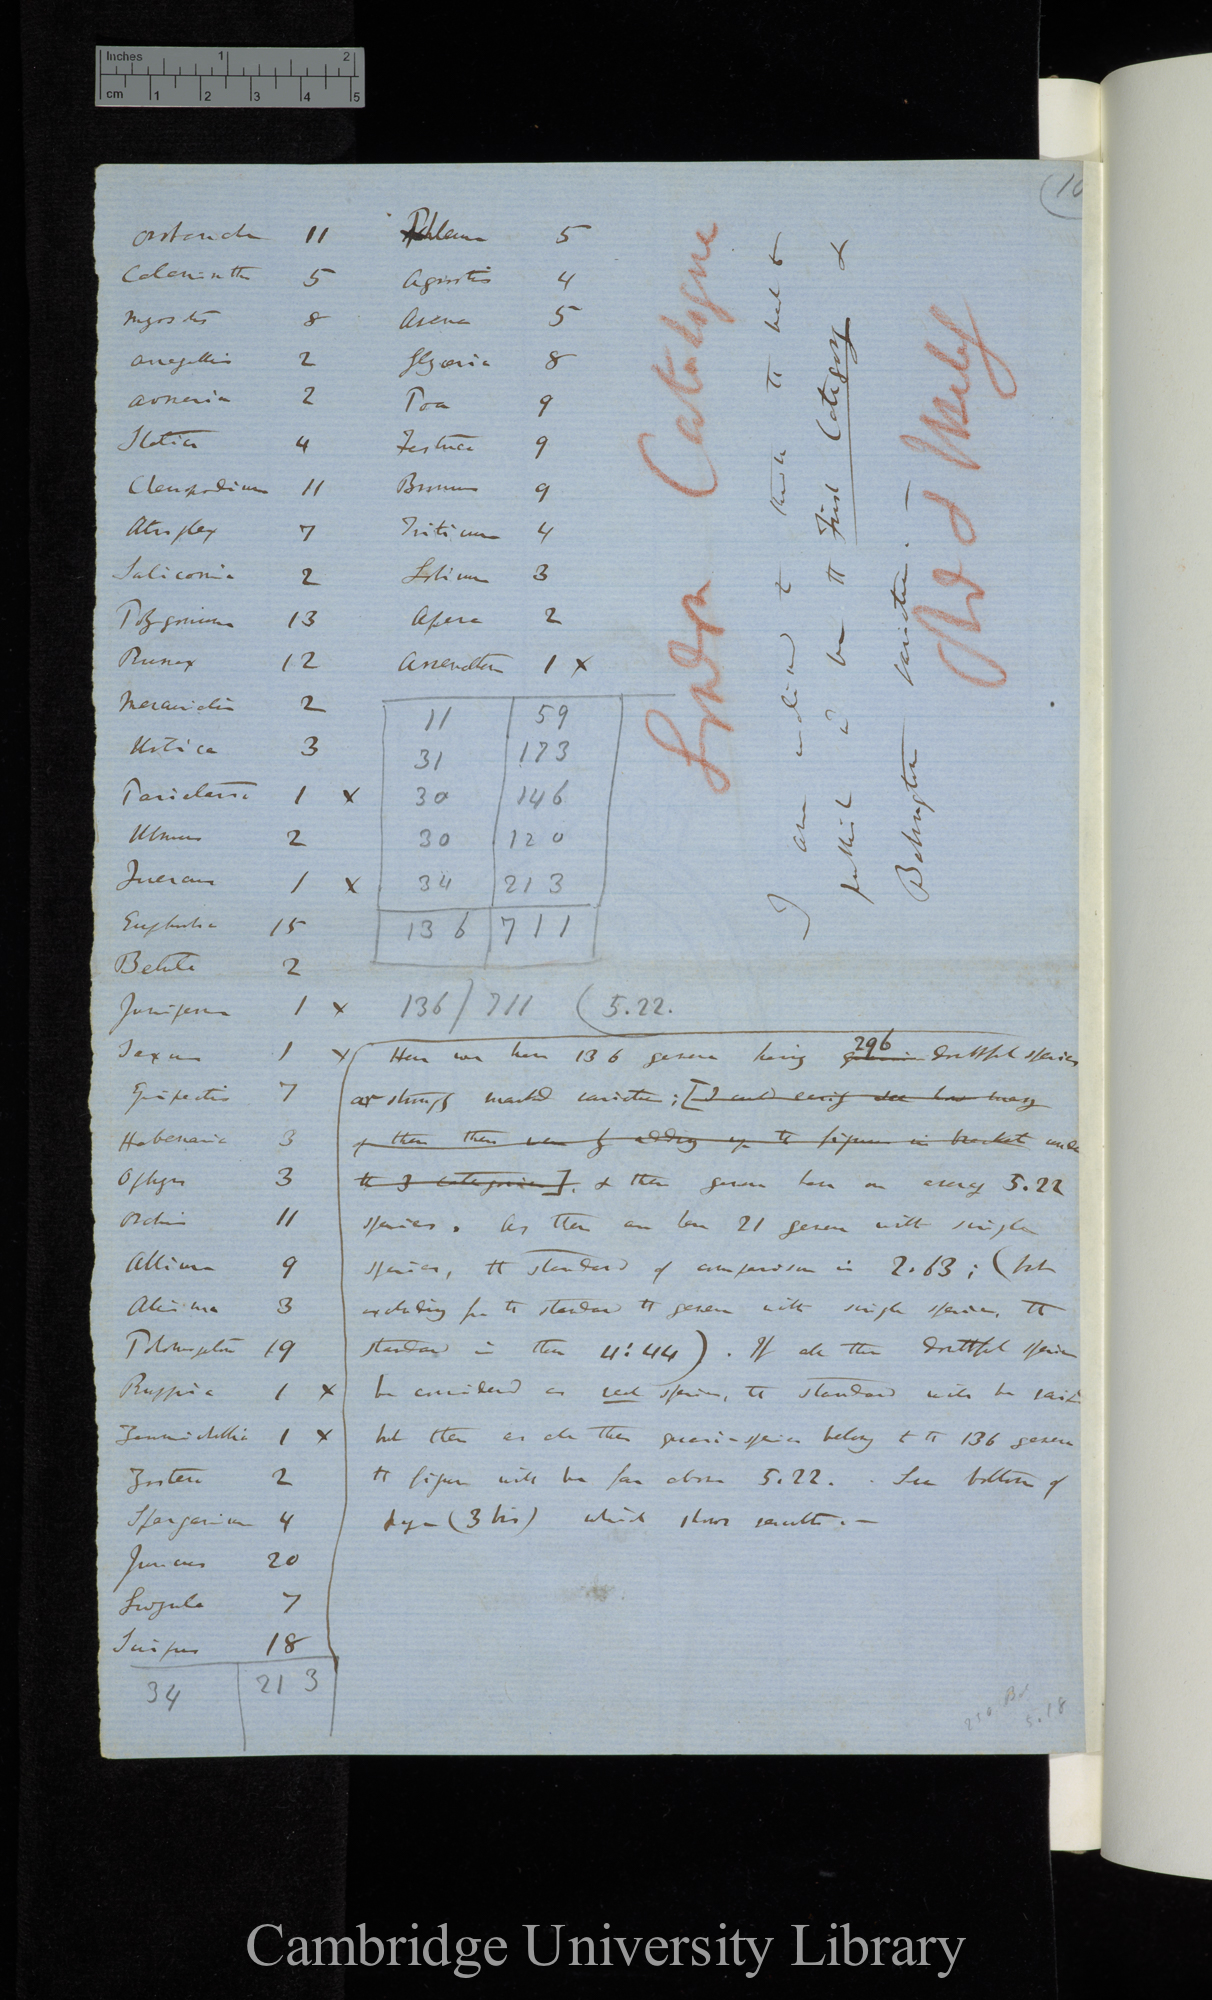 Inches 1 2
cm 1 2 3 4 5
(10
11
Calamintha 5
Myosotis 8
Anagallis 2
Armeria 2
Statice 4
Chenopodium 11
Atriplex 7
Salicornia 2
Polygonum 13
Rumex 12
Mercurialis 2
Urtica 3
Parietaria 1 x
Ulmus 2
Quercus 1 x
Euphorbia 15
Betula 2
Juniperus 1 x
Taxus 1 x
Epipactis 7
Habenaria 3
Ophrys 3
Orchis 11
Allium 9
Alisma 3
Potamogeton 19
Ruppia 1 x
Zannichellia 1 x
Zostera 2
Sparganium 4
Juncus 20
Luzula 7
Scirpus 18
34 213
Phleum 5
Agrostis 4
Avena 5
Glyceria 8
Poa 9
Festuca 9
Bromus 9
Triticum 4
Lolium 3
Apera 2
1 x
11 59
31 173
30 146
30 120
34 213
136 711
136 / 711 ( 5.22.
Here we have 136 genera having 296 doubtful species
or strongly marked varieties; [I could easily see how many
of them there were by adding up the figures in bracket under
the 3 categories], & these genera have on average 5.22
species. As there are here 21 genera with single
species, the standard of comparison is 2.63; (but
excluding for the standard the genera with single species, the
standard is then 4:44). If all these doubtful species
be considered as real species, the standard will be
but then as all these quasi-species belong to the 136 genera
the figure will be far above 5.22. See bottom of
(3 bis) which shows results.—
London Catalogue
I am inclined to think the best to
publish wd be the First Category &
Babington varieties.—
250 Br
5.18
Cambridge University Library